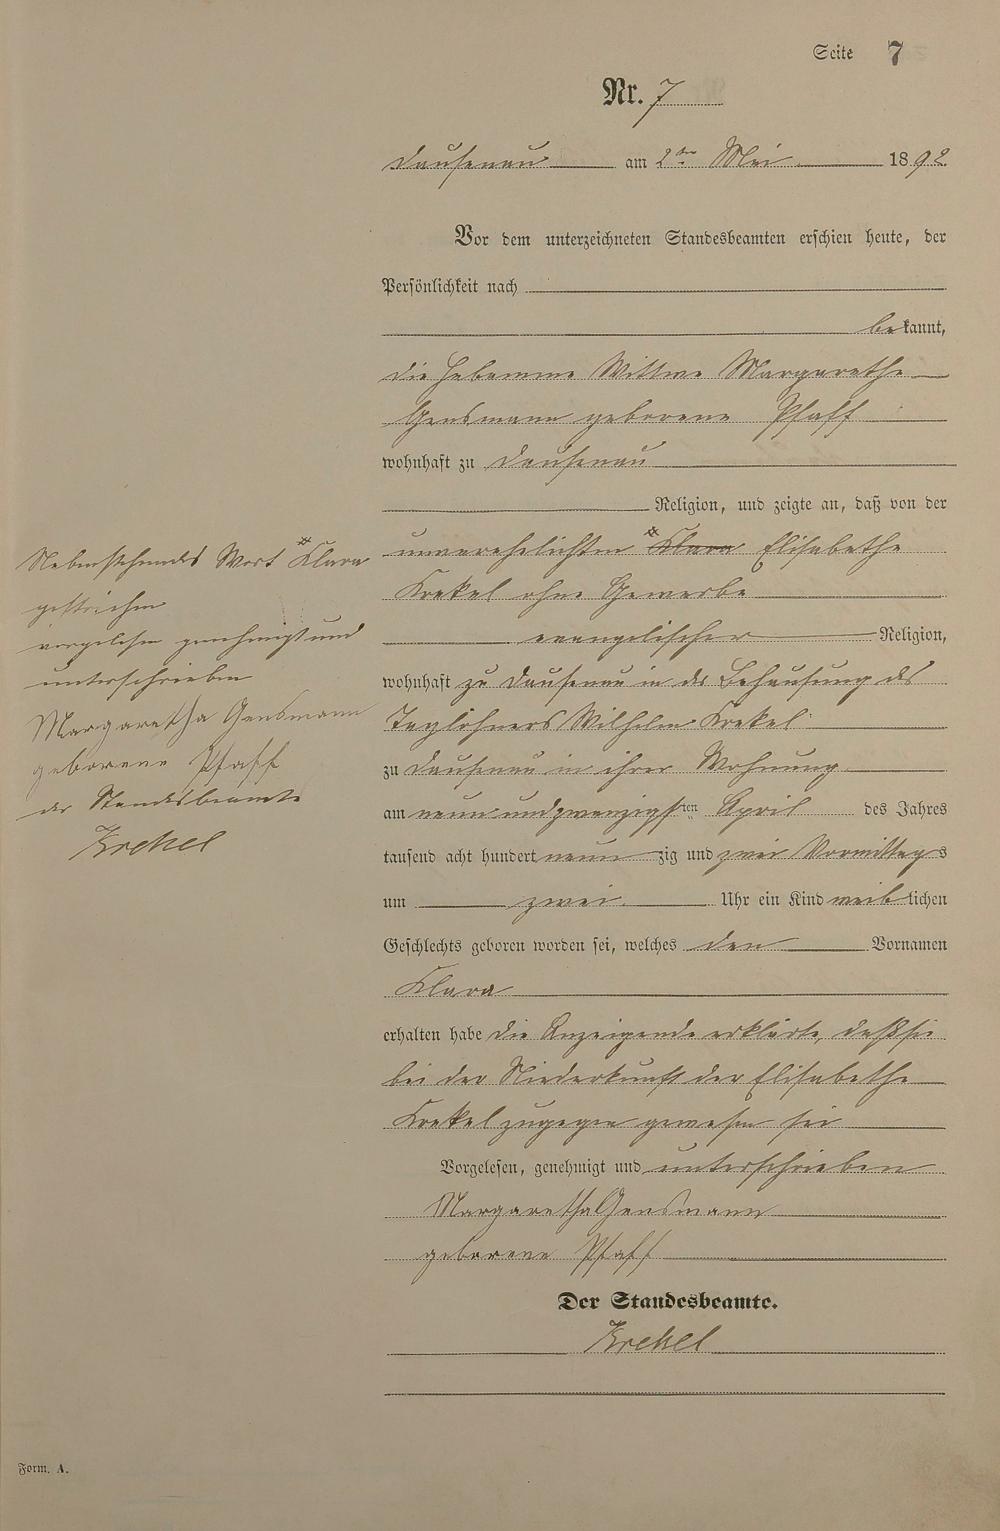 Seite 7
Nr. 7
Dausenau am 2ten Mai 1892
Vor dem unterzeichneten Standesbeamten erschien heute, der
Persönlichkeit nach
bekannt,
die Hebamme Wittwe Margarethe
Gensmann geborene Pfaff
wohnhaft zu Dausenau
Religion, und zeigte an, daß von der
unverehelichten Klara Elisabethe
Krekel ohne Gewerbe
evangelischer Religion,
wohnhaft zu Dausenau in der Behausung des
Taglöhners Wilhelm Krekel
zu Dausenau in ihrer Wohnung
am neun undzwanzigsten April des Jahres
tausend acht hundert neun zig und zwei Vormittags
um zwei Uhr ein Kind weiblichen
Geschlechts geboren worden sei, welches den Vornamen
Klara
erhalten habe die Anzeigende erklärte, daß sie
bei der Niederkunft der Elisabethe
Krekel zugegen gewesen sei
Vorgelesen, genehmigt und unterschrieben
Margaretha Gensmann
geborene Pfaff
Der Standesbeamte.
Krekel
Nebenstehendes Wort Klara
gestrichen
vorgelesen genehmigt und
unterschrieben
Margaretha Gensmann
geborene Pfaff
der Standesbeamte
Krekel
Form. A.